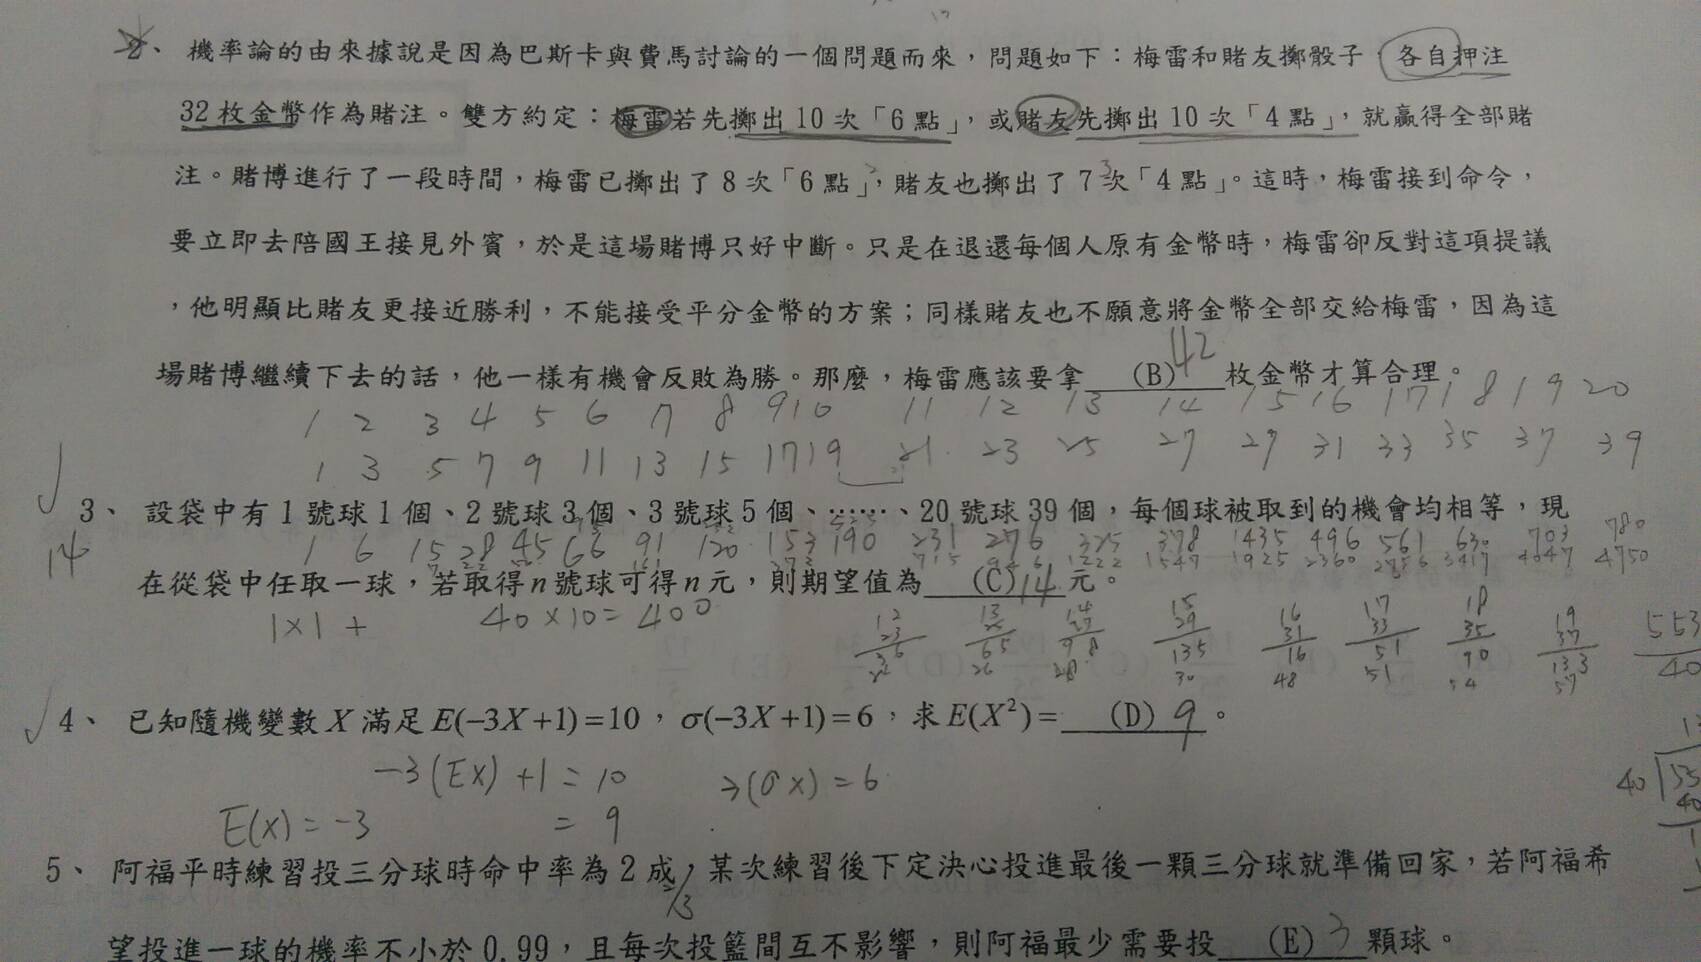 2、機率論的由來據說是因為巴斯卡與費馬討論的一個問題而來，問題如下：梅雷和賭友擲骰子，各自押注
32枚金幣作為賭注。雙方約定：梅雷若先擲出10次「6點」，或賭友先擲出10次「4點」，就贏得全部賭
注。賭博進行了一段時間，梅雷已擲出了8次「6點」，賭友也擲出了7次「4點」。這時，梅雷接到命令，
要立即去陪國王接見外賓，於是這場賭博只好中斷。只是在退還每個人原有金幣時，梅雷卻反對這項提議
，他明顯比賭友更接近勝利，不能接受平分金幣的方案；同樣賭友也不願意將金幣全部交給梅雷，因為這
場賭博繼續下去的話，他一樣有機會反敗為勝。那麼，梅雷應該要拿 (B) 42 枚金幣才算合理。
1 2 3 4 5 6 7 8 9 10 11 12 13 14 15 16 17 18 19 20
1 3 5 7 9 11 13 15 17 19 21 23 25 27 29 31 33 35 37 39
3、設袋中有1號球1個、2號球3個、3號球5個、……、20號球39個，每個球被取到的機會均相等，現
14
1 6 15 28 45 66 91 120 153 190 231 276 325 378 435 496 561 630 703 780
在從袋中任取一球，若取得n號球可得n元，則期望值為 (C) 14 元。
1×1+ 40×10=400
4、已知隨機變數X滿足E(-3X+1)=10，σ(-3X+1)=6，求E(X²)= (D) 9 。
-3(EX)+1=10
E(X)=-3 =9
5、阿福平時練習投三分球時命中率為2成，某次練習後下定決心投進最後一顆三分球就準備回家，若阿福希
望投進一球的機率不小於0.99，且每次投籃間互不影響，則阿福最少需要投 (E) 3 顆球。